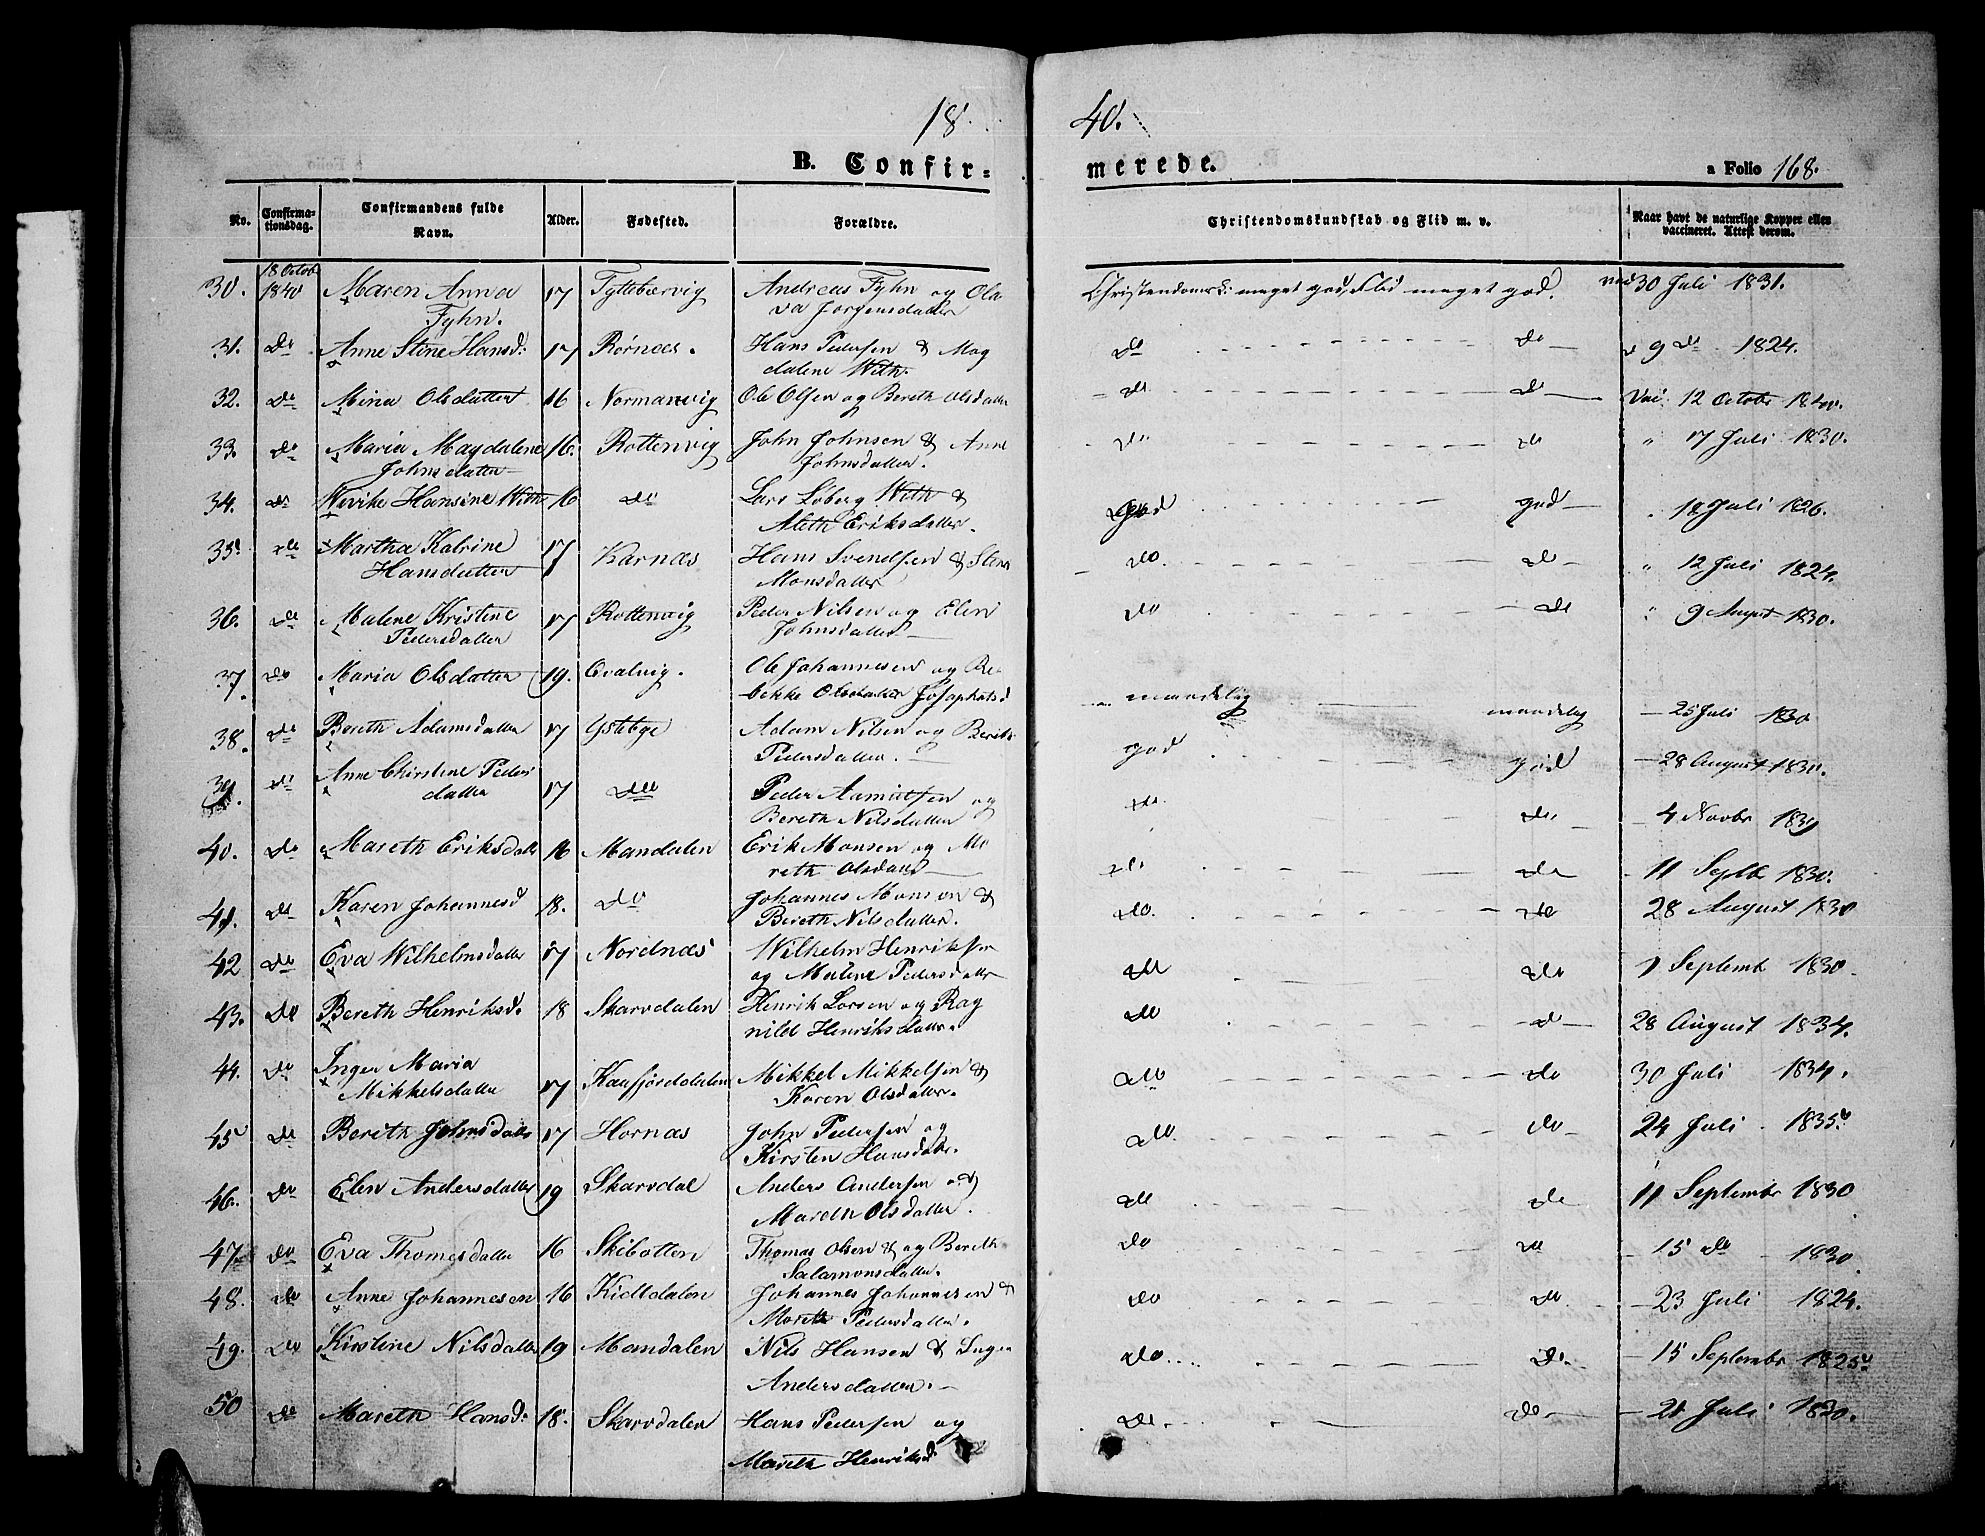 18
40.
B. Confir=
merede.
a Folio 168.
No. Confirma-tionsdag. Confirmandens fulde Navn. Alder. Fødested. Forældre. Christendomskundskab og Flid m. v. Naar havt de naturlige Kopper eller vaccineret. Attest derom.
30. 18 Octob 1840 Maren Anna 17 Tyttebærvig Andreas Fyhn og Ola Christendomsk: meget god, Flid meget god. 30 Juli 1831.
Fyhn. va Jørgensdatter
31. do Anne Stine Hansd: 17 Rørnæs. Hans Pedersen & Mag do do 9 do 1824.
dalene With.
32. do Mina Olsdatter 16 Normanvig Ole Olsen og Bereth Olsdatter do do 12 Octobr 1840.
33. do Maria Magdalene 16. Rottenvig John Johnsen & Anne do do " 17 Juli 1830.
Johnsdatter Johnsdatter.
34. do Hansine With 16 do Lars Loberg With & god god " 18 Juli 1826.
Aleth Eriksdatter.
35. do Martha Katrine 17 Karnæs Hans Svendsen & Stina do do " 12 Juli 1824.
Hansdatter Monsdatter
36. do Malene Kristine 17 Rottenvig Peder Nilsen og Elen do do " 9 August 1830.
Pedersdatter Johnsdatter
37. do Maria Olsdatter 19. Qvalvig. Ole Johannesen og Re maadelig maadelig 25 Juli 1830
bekke Olsdatter Josaphatsd
38. do Bereth Adamsdatter 17 Ystebye Adam Nilsen og Bereth god god 28 August 1830.
Pedersdatter.
39. do Anne Christine Peders 17 do Peder Aamundsen og do do 4 Novbr 1839
datter Bereth Nilsdatter
40. do Mareth Eriksdatter 16 Mandalen Erik Monsen og Ma do do 11 Septb 1830.
reth Olsdatter
41. do Karen Johannesd 18. do Johannes Monsen & do do 28 August 1830
Bereth Nilsdatter.
42 do Eva Wilhelmsdatter 17 Nordnæs Wilhelm Henriksen do do 1 Septemb 1830.
og Malene Pedersdatter
43. do Bereth Henriksd. 18 Skarvdalen Henrik Larsen og Rag do do 28 August 1834.
nild Henriksdatter.
44. do Inger Maria 17 Kaafjorddalen Mikkel Mikkelsen & do do 30 Juli 1834.
Mikkelsdatter Karen Olsdatter.
45 do Bereth Johnsdatter 17 Hornæs John Pedersen og do do 24 Juli 1835.
Kirsten Hansdatr.
46. do Elen Andersdatter 19 Skarvdal Anders Andersen og do do 11 Septembr 1830
Mareth Olsdatter.
47 do Eva Thomesdatter 16 Skibotten Thomas Olsen & og Bereth do do 15 do 1830
Salamonsdatter.
48. do Anne Johannesen 16 Kidtdalen Johannes Johannesen & do do 23 Juli 1824.
Mareth Pedersdatter.
49. do Kirstine Nilsdatter 19 Mandalen Nils Hansen & Inger do do 15 Septembr 1825
Andersdatter.
50 do Mareth Hansd: 18. Skarvdalen Hans Pedersen og do do 21 Juli 1830.
Mareth Henriksd